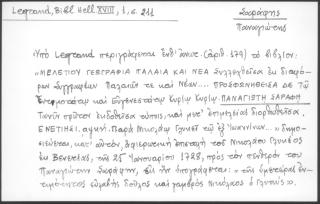 Legrand, Bibl Hell XVIII, 1, σ. 211
Σαράφης
Παναγιώτης
Ὑπὸ Legrand περιγράφεται ἐνθ' ἀνωτ. (ἀριθ. 179) τὸ βιβλίον:
"ΜΕΛΕΤΙΟΥ ΓΕΩΓΡΑΦΙΑ ΠΑΛΑΙΑ ΚΑΙ ΝΕΑ συλλεχθεῖσα ἐκ διαφό-
ρων Συγγραφέων Παλαιῶν τε καὶ Νέων.... ΠΡΟΣΦΩΝΗΘΕΙΣΑ ΔΕ τῷ
Ἐντιμοτάτῳ καὶ Εὐγενεστάτῳ Κυρίῳ Κυρίῳ ΠΑΝΑΓΙΩΤΗ ΣΑΡΑΦΗ
Νῦν πρῶτον ἐκδοθεῖσα τύποις, καὶ μετ' ἐπιμελείας διορθωθεῖσα.
ΕΝΕΤΙΗΣΙ. αψκη. Παρὰ Νικολάῳ Γλυκεῖ τῷ ἐξ Ἰωαννίνων..." δημο-
σιεύεται, κατ' αὐτόν, ἀφιερωτικὴ ἐπιστολὴ τοῦ Νικολάου Γλυκέος
ἐκ Βενετίας, τῆς 25 Ἰανουαρίου 1728, πρὸς τὸν πενθερόν του
Παναγιώτην Σαράφην, εἰς ἣν ὑπογράφεται: "τῆς ὑμετέρας ἐν-
τιμότητος εὐπειθὴς δοῦλος καὶ γαμβρὸς Νικόλαος ὁ Γλυκύς".